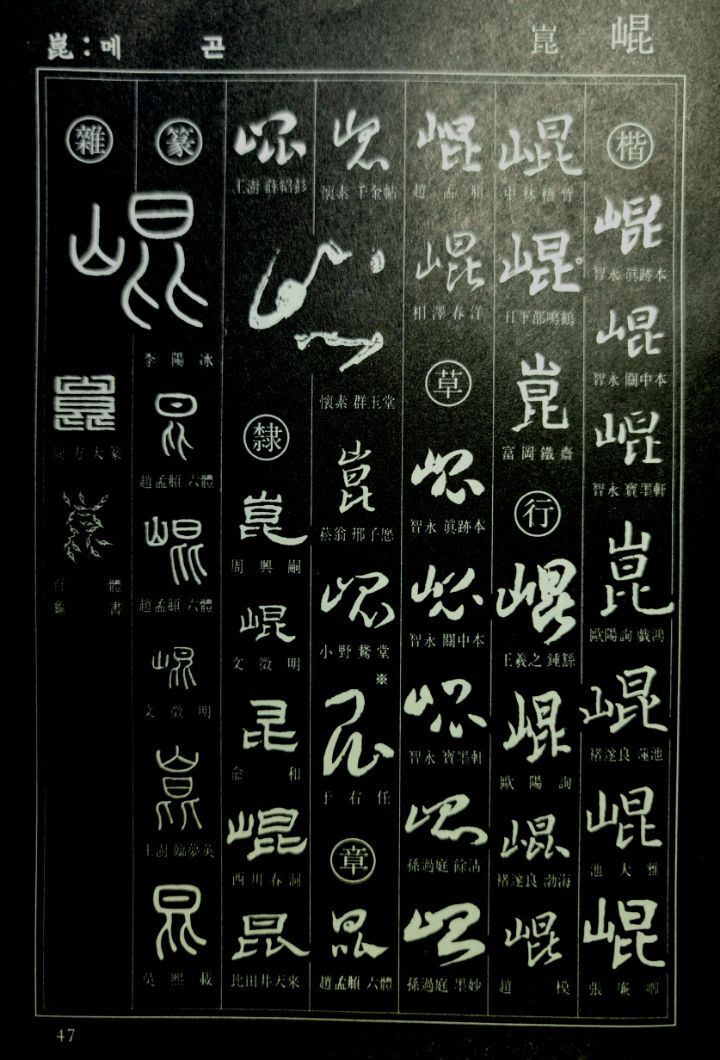 崑：메 곤 崑 崐
楷
崐
智永 眞跡本
崐
智永 關中本
崐
智永 寶墨軒
崑
歐陽詢 戲鴻
崐
褚遂良 蓮池
崐
池大雅
崐
張廉卿
崐
中林梧竹
崐
日下部鳴鶴
崑
富岡鐵齋
行
崐
王羲之 鍾繇
崐
歐陽詢
崐
褚遂良 渤海
崐
趙模
崐
趙孟頫
崐
相澤春洋
草
崐
智永 眞跡本
崐
智永 關中本
崐
智永 寶墨軒
崐
孫過庭 餘清
崐
孫過庭 墨妙
崐
懷素 千金帖
崐
懷素 群玉堂
崑
菘翁 邢子愿
崐
小野鵞堂
※
昆
于右任
章
昆
趙孟頫 六體
崐
王澍
隸
崑
周興嗣
崐
文徵明
昆
兪和
崐
西川春洞
昆
比田井天來
篆
崐
李陽冰
昆
趙孟頫 六體
崐
趙孟頫 六體
崐
文徵明
崑
王澍 臨夢英
昆
吳熙載
雜
崑
百體
47